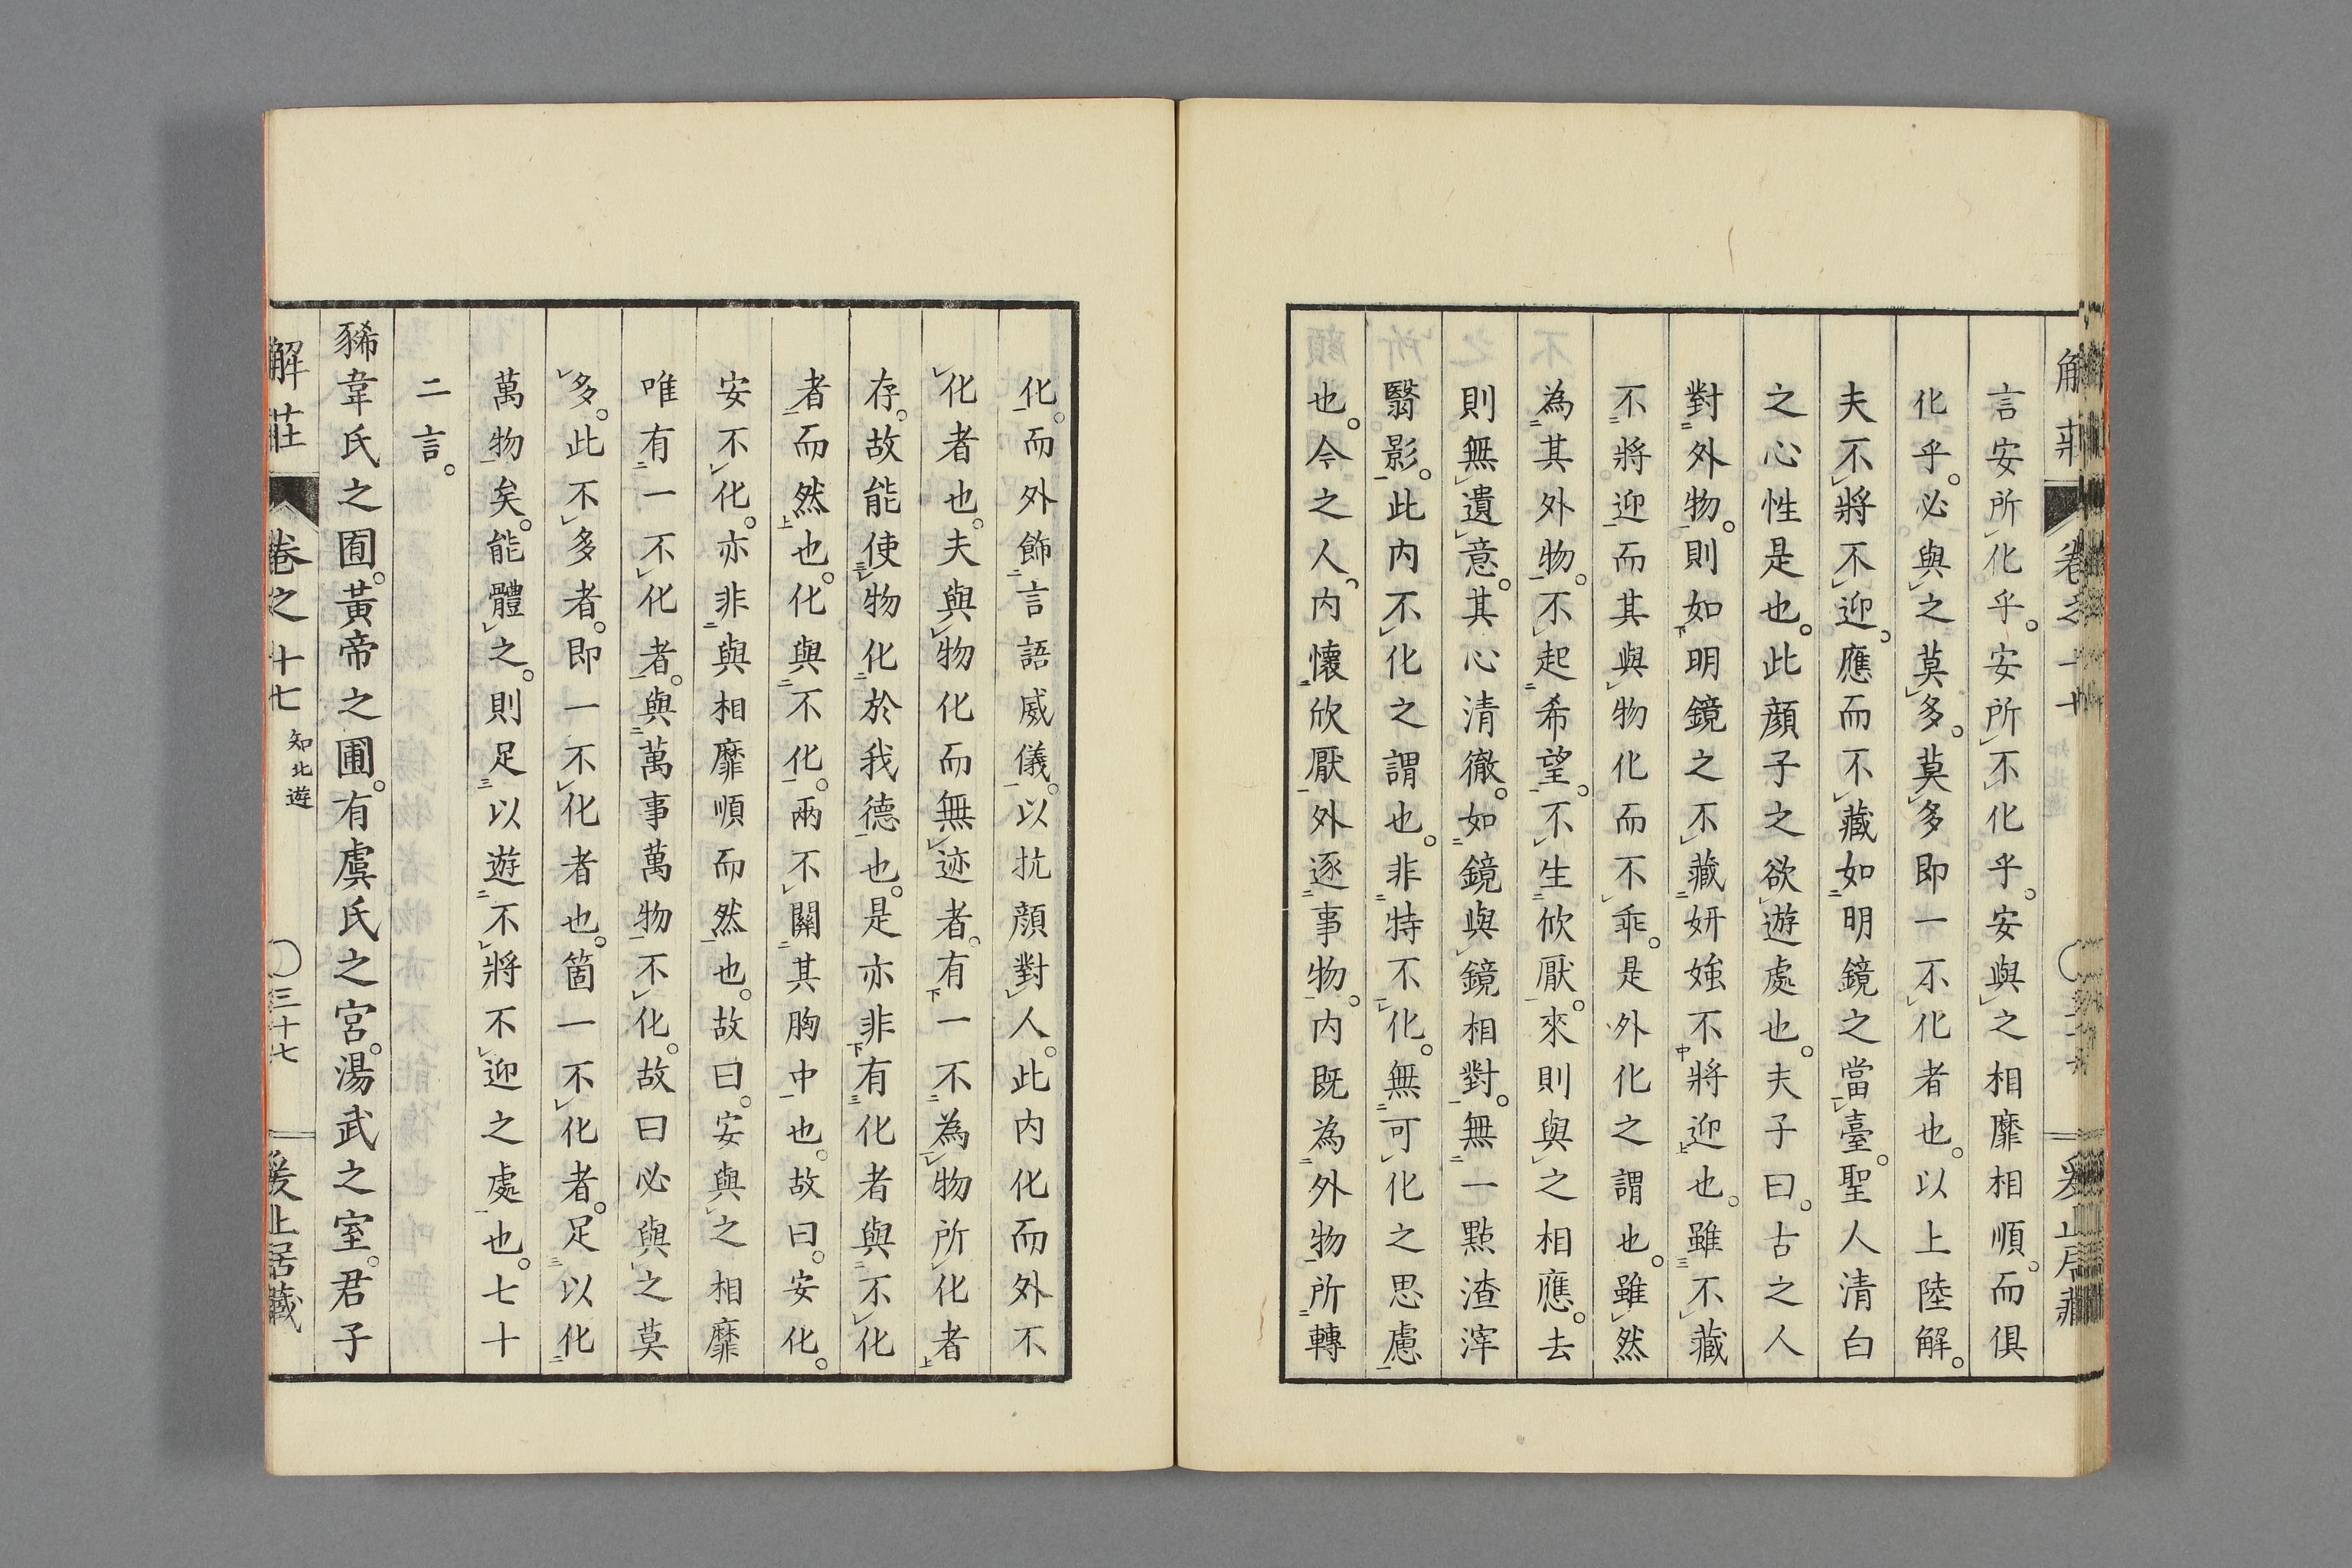 言安所化乎。安所不化乎。安與之相靡相順。而俱
化乎。必與之莫多。莫多即一不化者也。以上陸解。
夫不將不迎。應而不藏如明鏡之當臺。聖人清白
之心性是也。此顔子之欲遊處也。夫子曰。古之人
對外物。則如明鏡之不藏妍媸不將迎也。雖不藏
不將迎而其與物化而不乖。是外化之謂也。雖然
為其外物。不起希望。不生欣厭。來則與之相應。去
則無遺意。其心清徹。如鏡與鏡相對。無一㸃渣滓
翳影。此内不化之謂也。非特不化。無可化之思慮
也。今之人。内懷欣厭外逐事物。内既為外物所轉
化。而外飾言語威儀。以抗顔對人。此内化而外不
化者也。夫與物化而無迹者。有一不為物所化者
存。故能使物化於我德也。是亦非有化者與不化
者而然也。化與不化。兩不關其胸中也。故曰。安化。
安不化。亦非與相靡順而然也。故曰。安與之相靡
唯有一不化者。與萬事萬物不化。故曰必與之莫
多。此不多者。即一不化者也。箇一不化者。足以化
萬物矣。能體之。則足以遊不將不迎之處也。七十
二言。
豨韋氏之囿。黃帝之圃。有虞氏之宮。湯武之室。君子
解莊 卷之十七 知北遊 〇三十七 爰止居藏